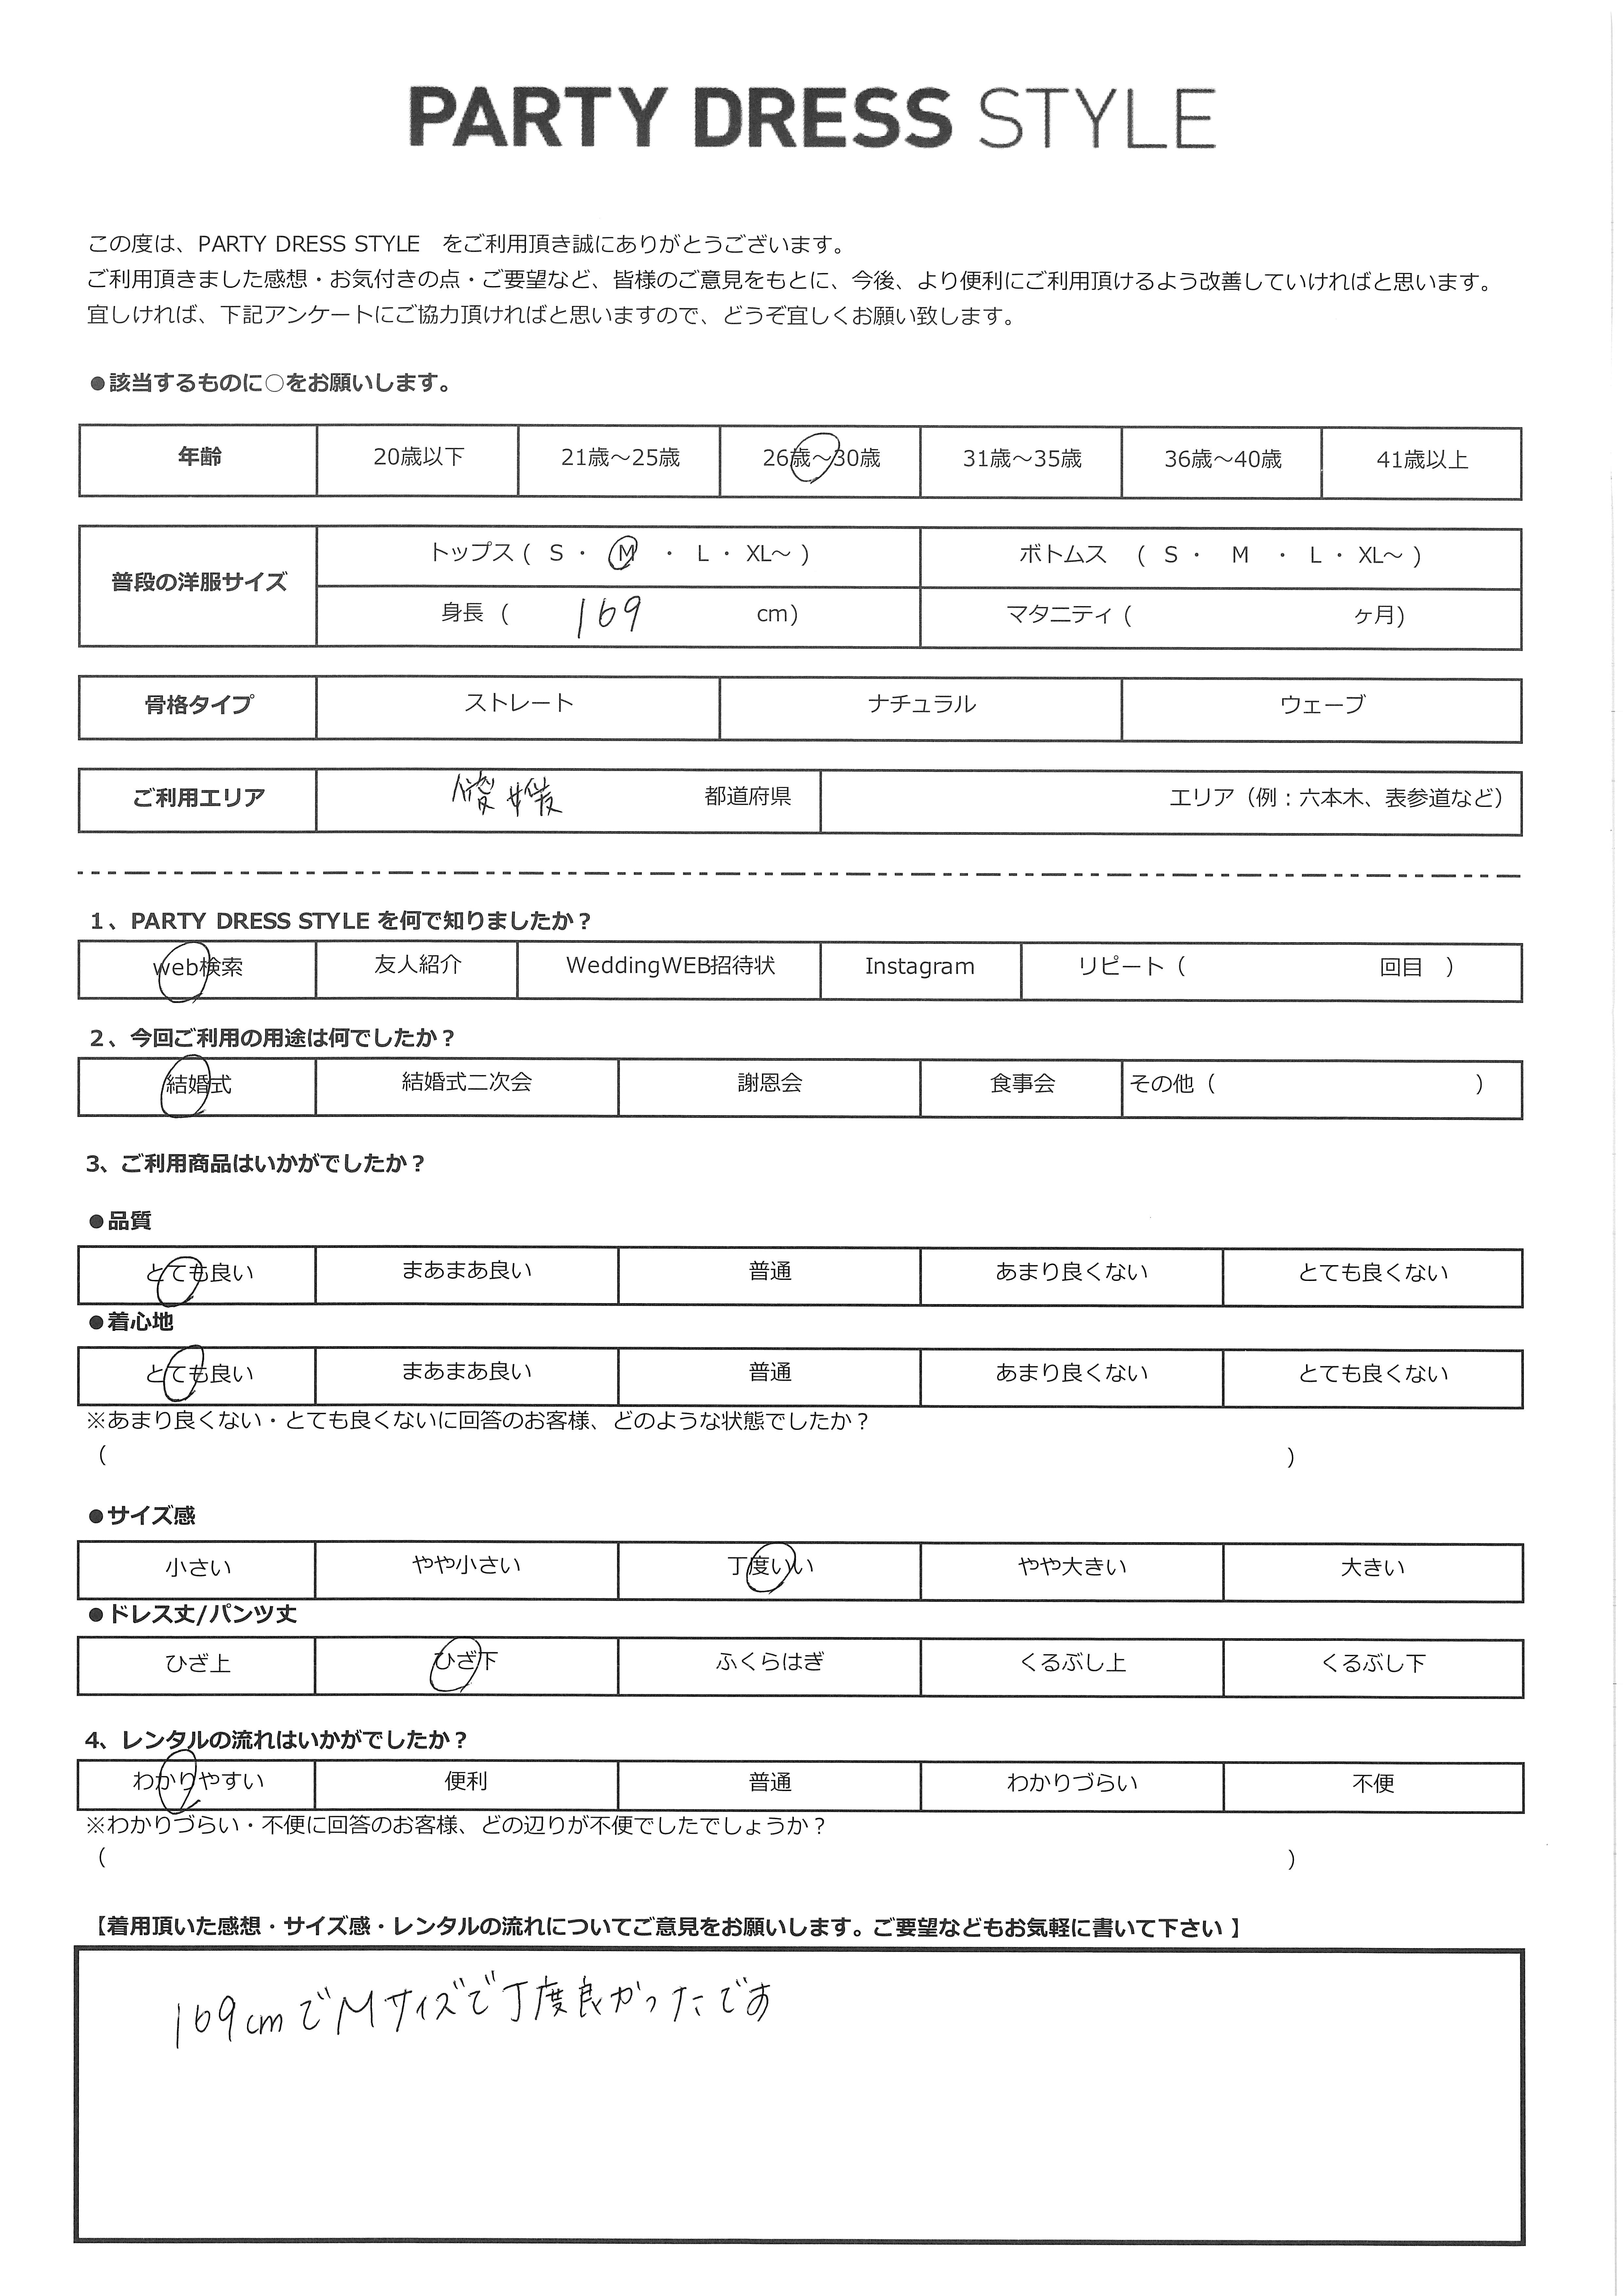 PARTY DRESS STYLE
この度は、PARTY DRESS STYLE　をご利用頂き誠にありがとうございます。
ご利用頂きました感想・お気付きの点・ご要望など、皆様のご意見をもとに、今後、より便利にご利用頂けるよう改善していければと思います。
宜しければ、下記アンケートにご協力頂ければと思いますので、どうぞ宜しくお願い致します。
●該当するものに○をお願いします。
年齢 20歳以下 21歳～25歳 26歳～30歳 31歳～35歳 36歳～40歳 41歳以上
普段の洋服サイズ
トップス ( S ・ M ・ L ・ XL～ ) ボトムス ( S ・ M ・ L ・ XL～ )
身長 ( 169 cm) マタニティ ( ヶ月)
骨格タイプ ストレート ナチュラル ウェーブ
ご利用エリア 愛媛 都道府県 エリア（例：六本木、表参道など）
1、PARTY DRESS STYLE を何で知りましたか？
web検索 友人紹介 WeddingWEB招待状 Instagram リピート（ 回目 ）
2、今回ご利用の用途は何でしたか？
結婚式 結婚式二次会 謝恩会 食事会 その他（ ）
3、ご利用商品はいかがでしたか？
●品質
とても良い まあまあ良い 普通 あまり良くない とても良くない
●着心地
とても良い まあまあ良い 普通 あまり良くない とても良くない
※あまり良くない・とても良くないに回答のお客様、どのような状態でしたか？
（ ）
●サイズ感
小さい やや小さい 丁度いい やや大きい 大きい
●ドレス丈/パンツ丈
ひざ上 ひざ下 ふくらはぎ くるぶし上 くるぶし下
4、レンタルの流れはいかがでしたか？
わかりやすい 便利 普通 わかりづらい 不便
※わかりづらい・不便に回答のお客様、どの辺りが不便でしたでしょうか？
（ ）
【着用頂いた感想・サイズ感・レンタルの流れについてご意見をお願いします。ご要望などもお気軽に書いて下さい 】
169cmでMサイズで丁度良かったです